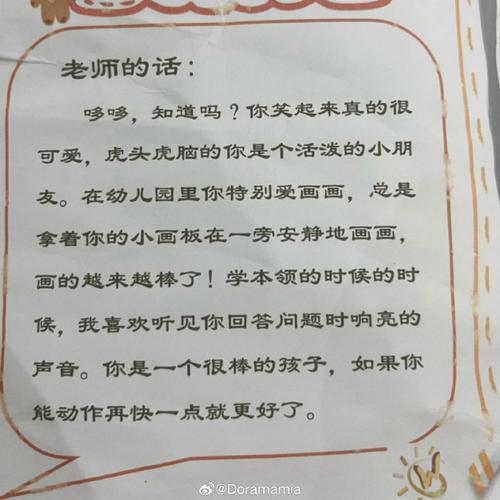 老师的话：
哆哆，知道吗？你笑起来真的很
可爱，虎头虎脑的你是个活泼的小朋
友。在幼儿园里你特别爱画画，总是
拿着你的小画板在一旁安静地画画，
画的越来越棒了！学本领的时候的时
候，我喜欢听见你回答问题时响亮的
声音。你是一个很棒的孩子，如果你
能动作再快一点就更好了。
@Doramamia